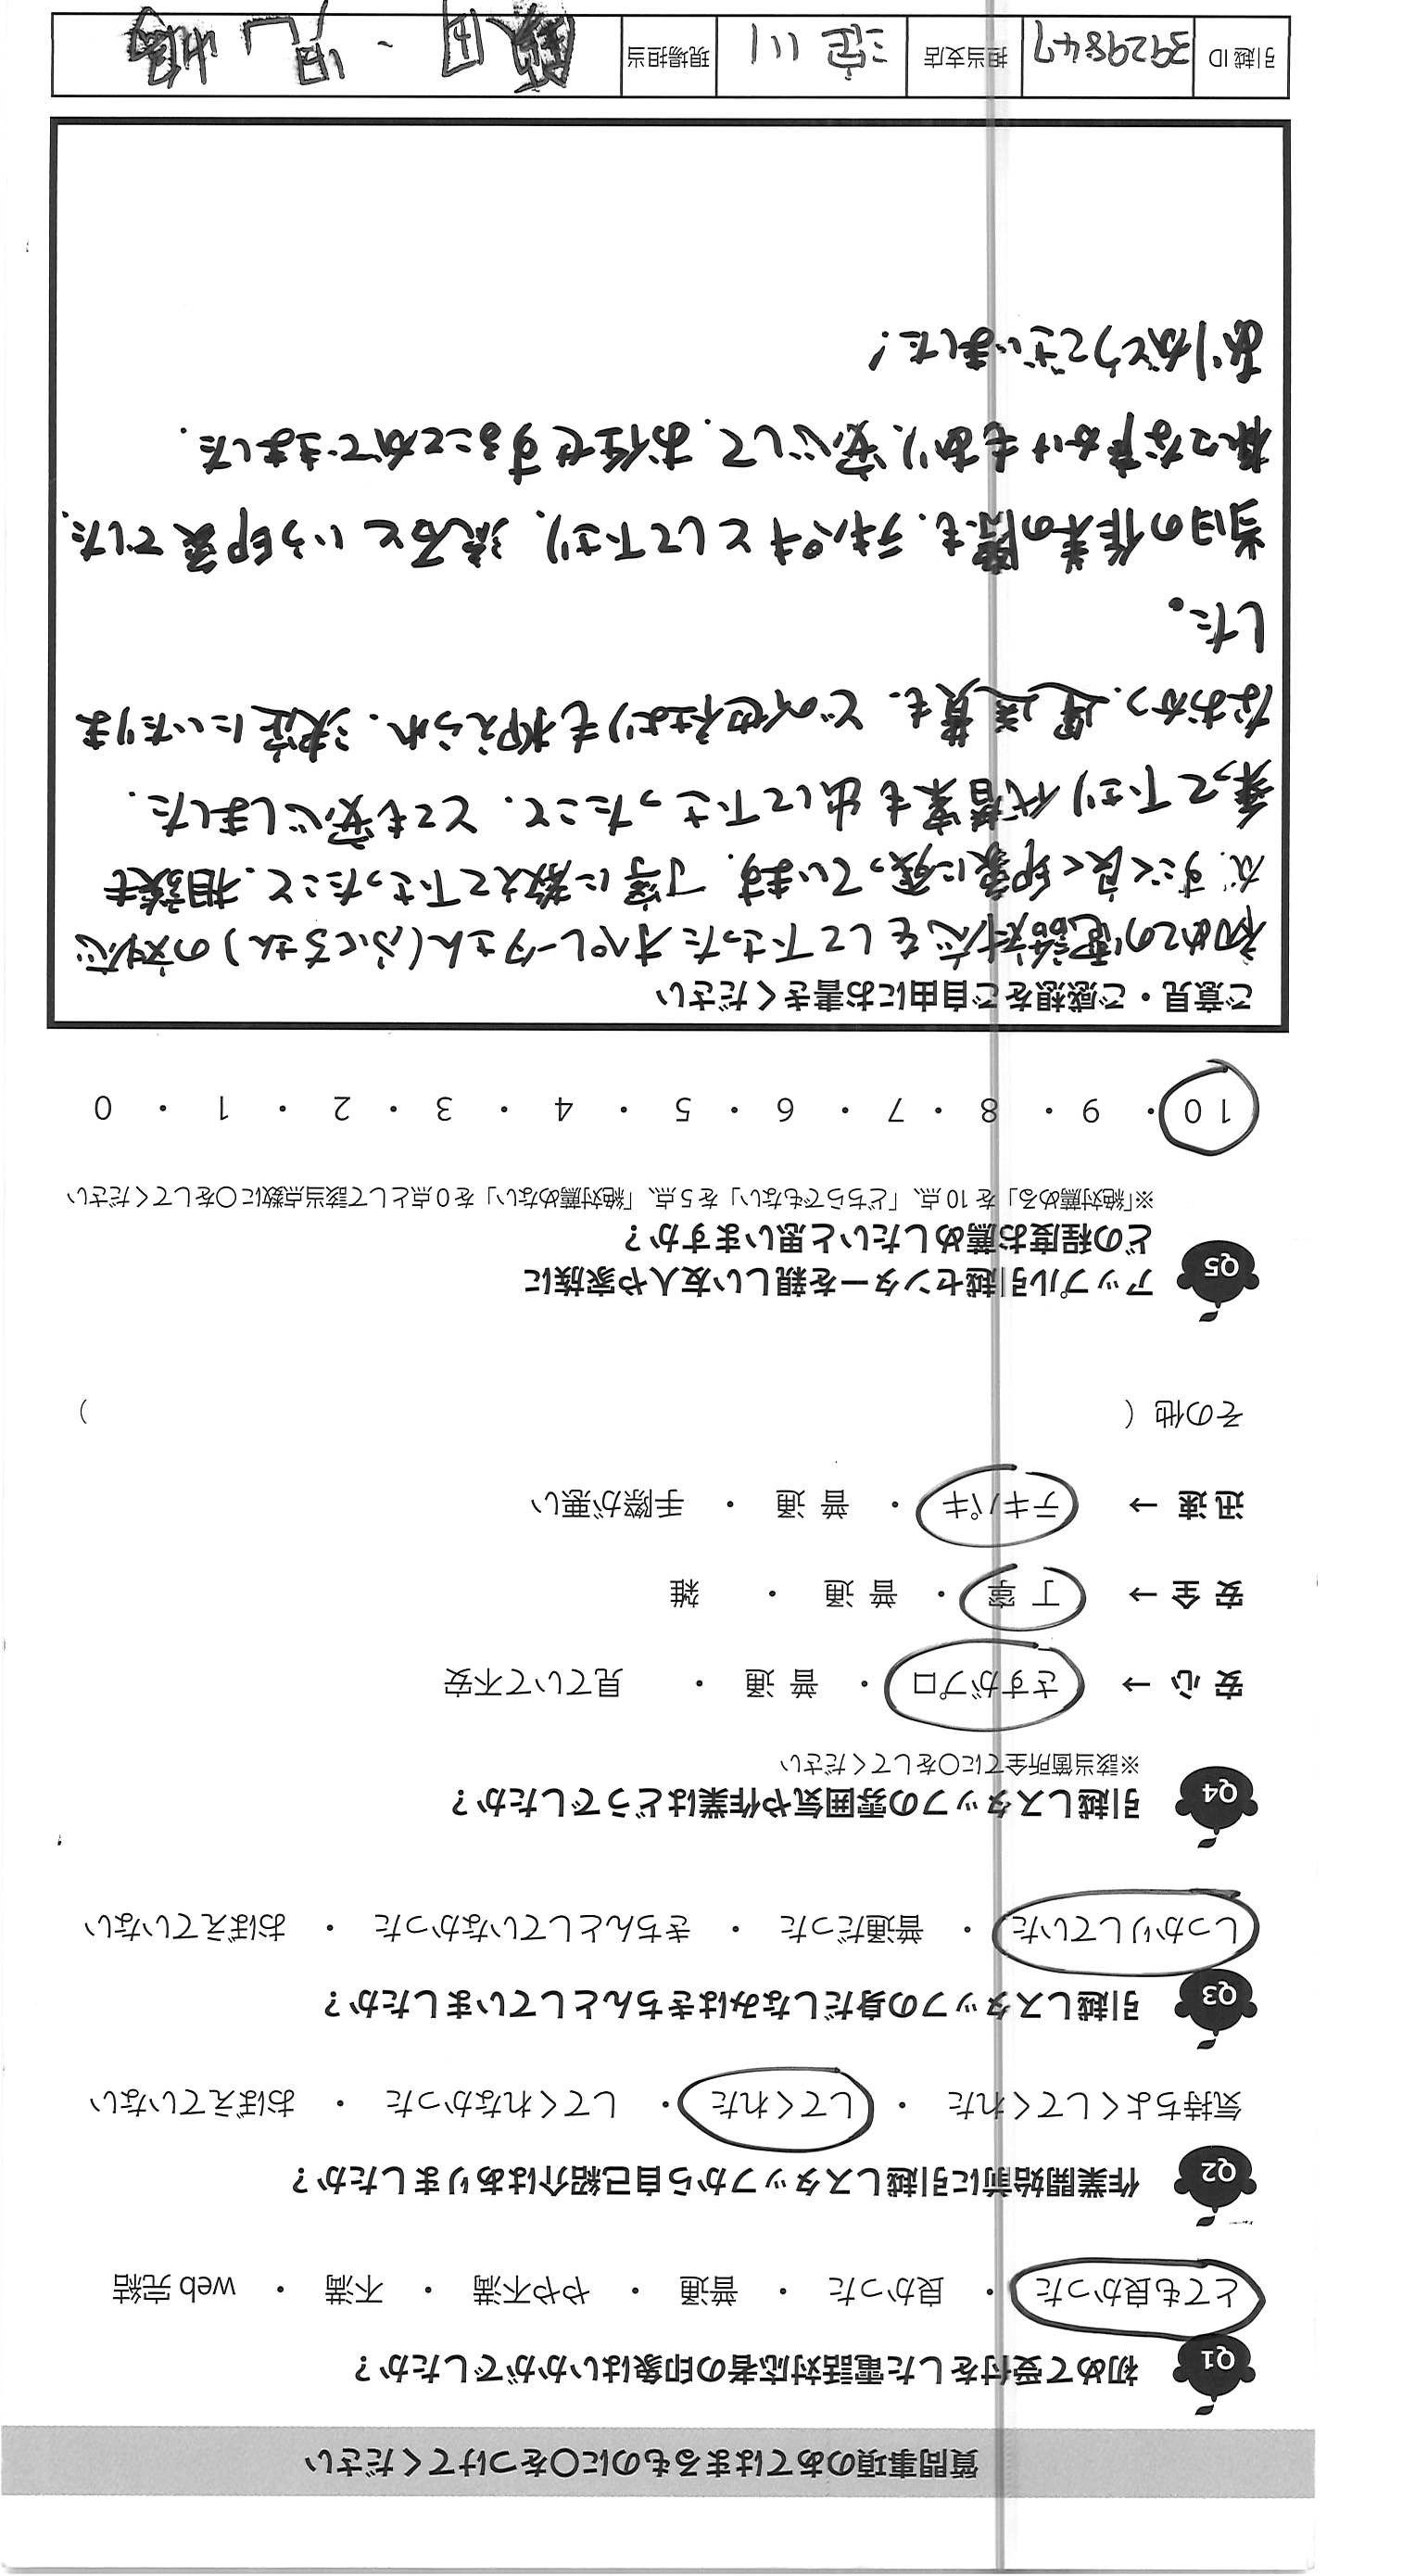 質問事項のあてはまるものに○をつけてください
Q1 初めて受付をした電話対応者の印象はいかがでしたか？
とても良かった ・ 良かった ・ 普通 ・ やや不満 ・ 不満 ・ web 完結
Q2 作業開始前に引越しスタッフから自己紹介はありましたか？
気持ちよくしてくれた ・ してくれた ・ してくれなかった ・ おぼえていない
Q3 引越しスタッフの身だしなみはきちんとしていましたか？
しっかりしていた ・ 普通だった ・ きちんとしていなかった ・ おぼえていない
Q4 引越しスタッフの雰囲気や作業はどうでしたか？
※該当箇所全てに○をしてください
安 心 → さすがプロ ・ 普 通 ・ 見ていて不安
安 全 → 丁 寧 ・ 普 通 ・ 雑
迅 速 → テキパキ ・ 普 通 ・ 手際が悪い
その他（ ）
Q5 アップル引越センターを親しい友人や家族に
どの程度お薦めしたいと思いますか？
※「絶対薦める」を 10 点、「どちらでもない」を 5 点、「絶対薦めない」を 0 点として該当点数に○をしてください
10 ・ 9 ・ 8 ・ 7 ・ 6 ・ 5 ・ 4 ・ 3 ・ 2 ・ 1 ・ 0
ご意見・ご感想をご自由にお書きください
初めての電話対応をして下さったオペレータさん(ふくろさん)の対応
が、すごく良く印象に残っています。丁寧に教えて下さったこと、相談も
乗って下さり代替案も出して下さったこと、とても安心しました。
なおかつ、運送費も、どの他社よりも抑えられ、決定にいたりま
した。
当日の作業の際も、テキパキとして下さり、流石という印象でした。
様々な声かけもあり、安心して、お任せすることができました。
ありがとうございました！
引越 ID 3929847 担当支店 淀川 現場担当